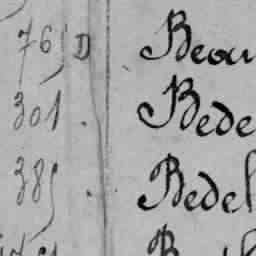 76 D Beau
301. Bede
385. Bedel